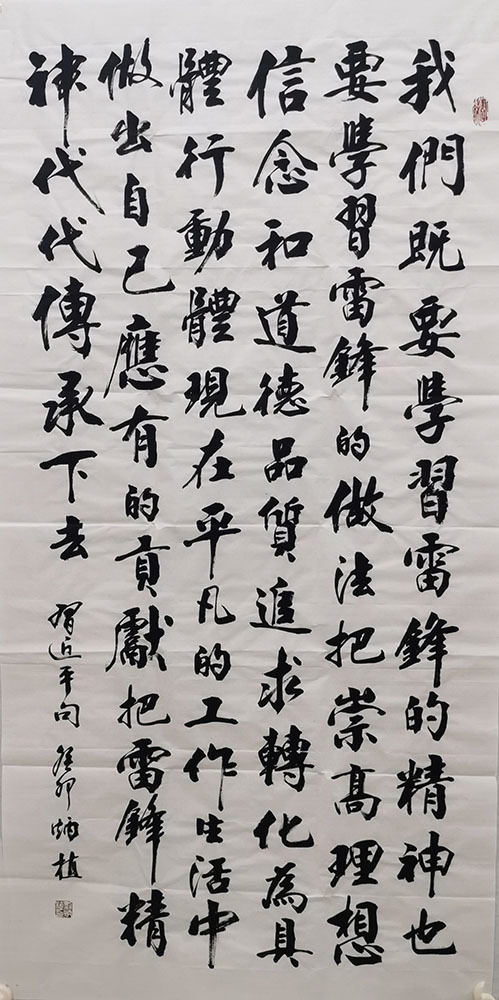 我們既要學習雷鋒的精神也
要學習雷鋒的做法把崇高理想
信念和道德品質追求轉化為具
體行動體現在平凡的工作生活中
做出自己應有的貢獻把雷鋒精
神代代傳承下去
習近平句 癸卯炳植